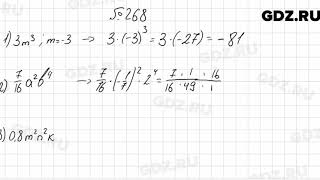 GDZ.RU
№268
1) 3m³; m=-3 → 3·(-3)³ = 3·(-27) = -81
2) 7/16 a²b⁴ → 7/16·(-1/7)²·2⁴ = 7·1·16/16·49·1
3) 0,8m²n²k